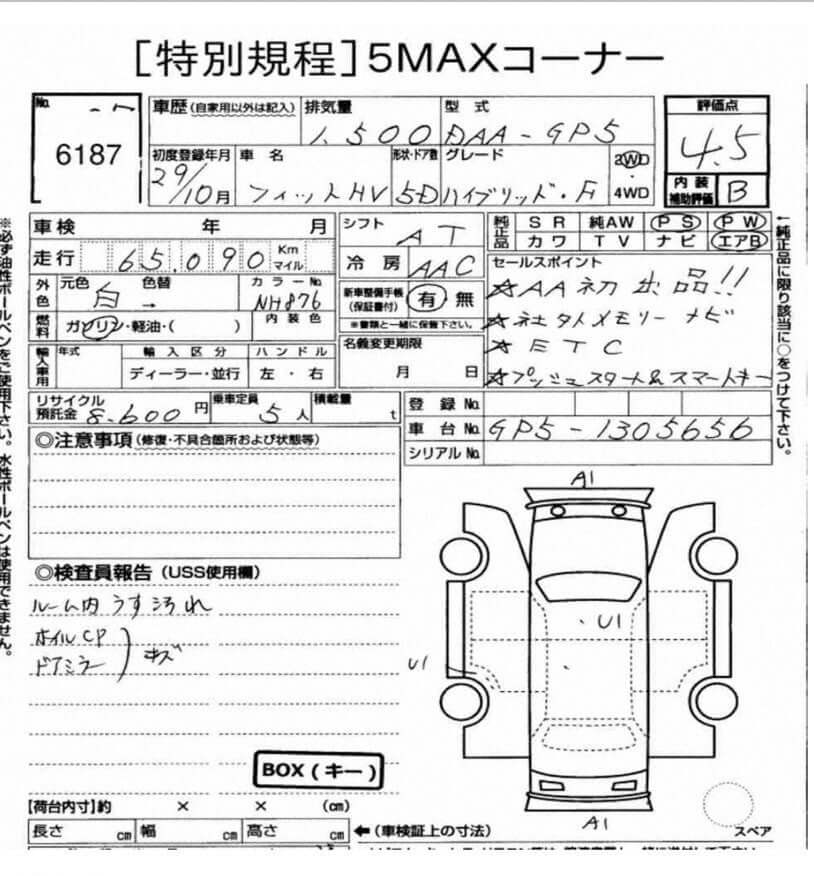 [特別規程]5MAXコーナー
No.
6187
車歴(自家用以外は記入) 排気量 型式
1,500 DAA-GP5
評価点
4.5
初度登録年月 車名 形状・ドア数 グレード 2WD
29/10月 フィットHV 5D ハイブリッド・F 4WD
内装補助評価 B
車検 年 月
シフト AT
純正品 SR 純AW PS PW
カワ TV ナビ エアB
走行 65,090 Km マイル
冷房 AAC
セールスポイント
☆AA初出品!!
外色 元色 白 色替 → カラーNo. NH876
新車整備手帳(保証書付) 有・無
※書類と一緒に保管下さい。
☆社外メモリーナビ
燃料 ガソリン・軽油・( ) 内装色
名義変更期限
月 日
☆ETC
輸入車用 年式 輸入区分 ハンドル
ディーラー・並行 左・右
☆プッシュスタート&スマートキー
リサイクル預託金 8,600円 乗車定員 5人 積載量 t
登録No.
車台No. GP5-1305656
シリアルNo.
◎注意事項(修復・不具合箇所および状態等)
◎検査員報告(USS使用欄)
ルーム内うす汚れ
ホイルCP
ドアミラー
キズ
BOX(キー)
A1
U1
U1
A1
スペア
【荷台内寸】約 × × (cm)
長さ cm 幅 cm 高さ cm ←(車検証上の寸法)
※必ず油性ボールペンをご使用下さい。水性ボールペンは使用できません。
←純正品に限り該当に○をつけて下さい。